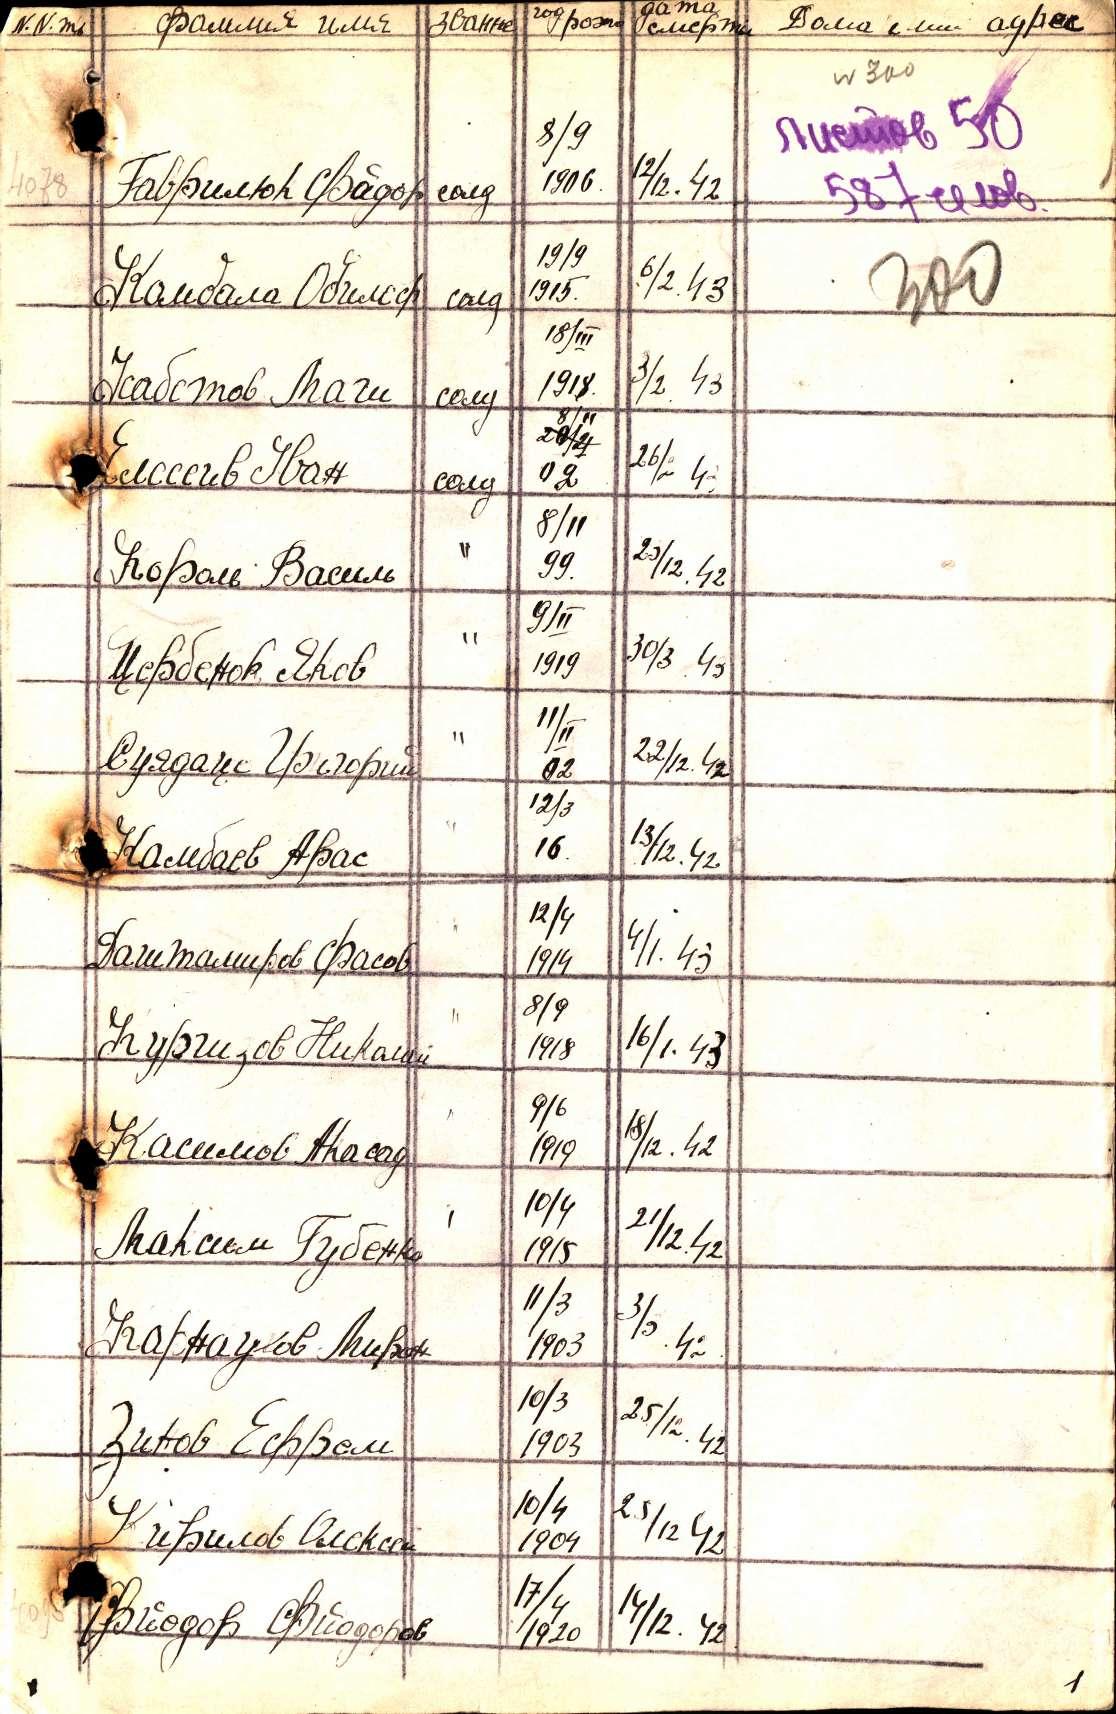 N.N. Фамилия имя звание год рожд дата смерти Домашний адрес
N 300
листов 50
587 челов.
300
8/9
4078 Гаврилюк Фёдор солд 1906. 12/12. 42
19/9
Камбала солд 1915. 6/2. 43
18/III
Кабстов Маги солд 1918. 3/2 43
8/II
Елссеив Iван солд 02 26/2 43
8/II
Король Василь " 99. 23/12. 42
9/II
Щербенок Яков " 1919 30/3 43
11/II
Григорий " 02 22/12. 42
12/3
Камбаев Арас " 16. 13/12. 42
12/4
Даштамиров Фасов " 1914 4/1. 43
8/9
Кургизов Николай " 1918 16/1. 43
9/6
Касимов Акасад " 1919 18/12. 42
10/4
Максим Губенко " 1915 21/12. 42
11/3
Карнаухов Мирон 1903 3/3 42
10/3
Зинов Ефрем 1903 25/12. 42
10/4
Кирилов Олексей 1904 25/12 42
17/4
Фйодор Фйодоров 1920 14/12. 42
1